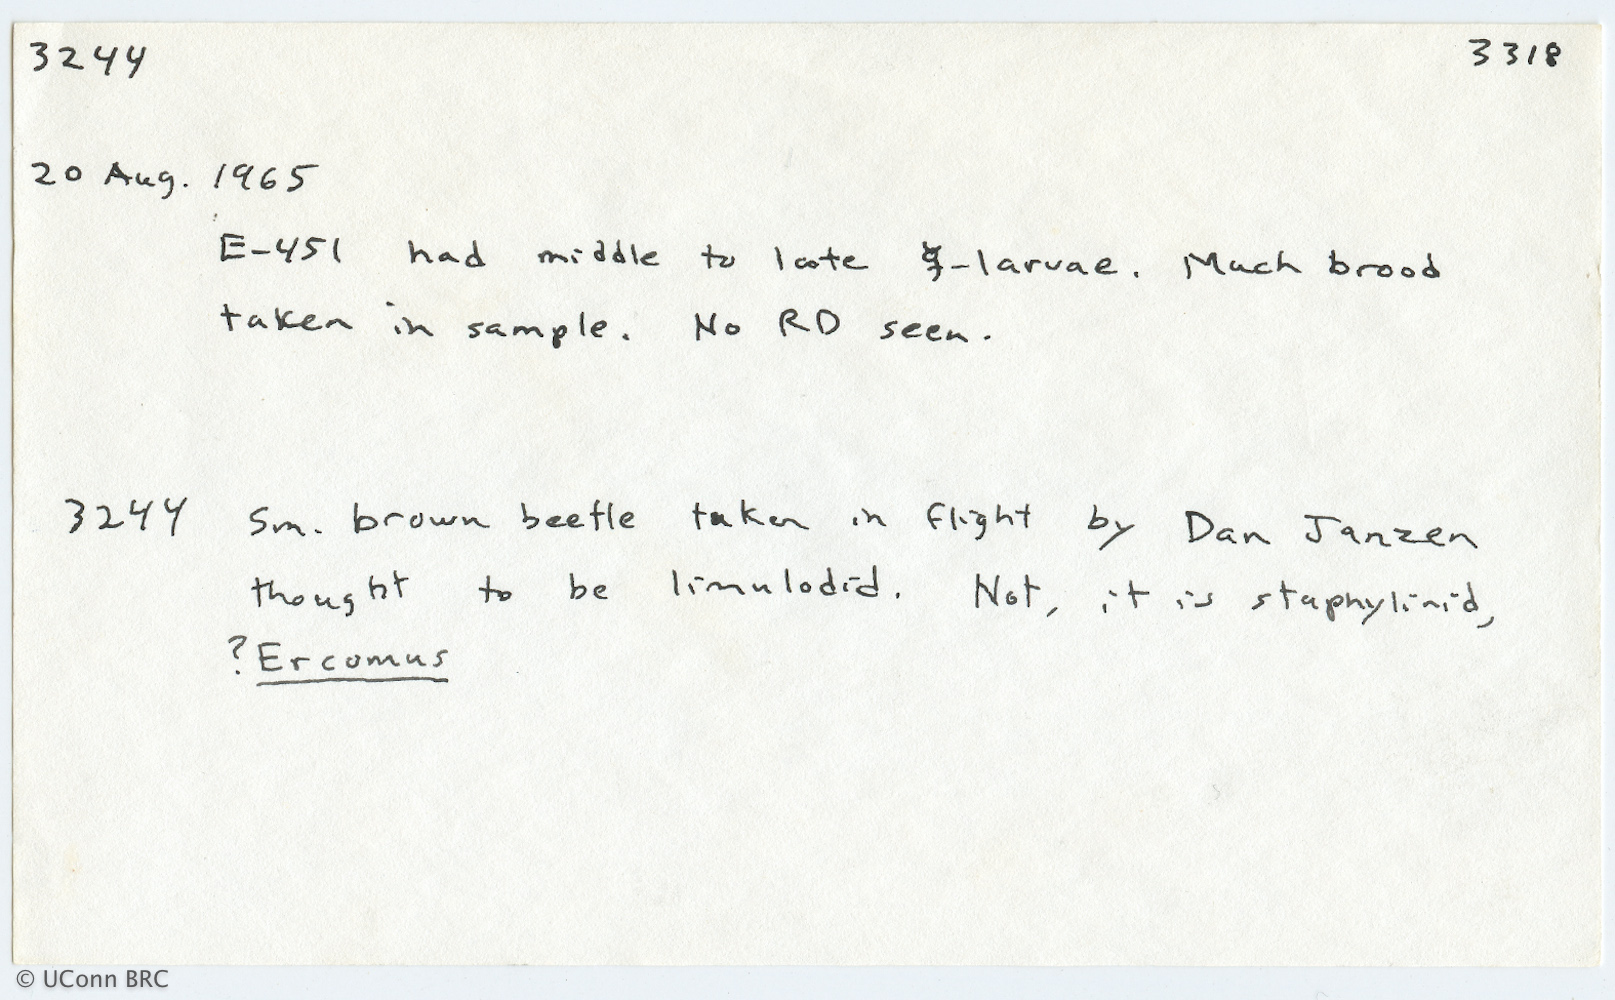 3244 3318
20 Aug. 1965
E-451 had middle to late ☿-larvae. Much brood
taken in sample. No RD seen.
3244 Sm. brown beetle taken in flight by Dan Janzen
thought to be limulodid. Not, it is staphylinid,
?Ercomus
© UConn BRC